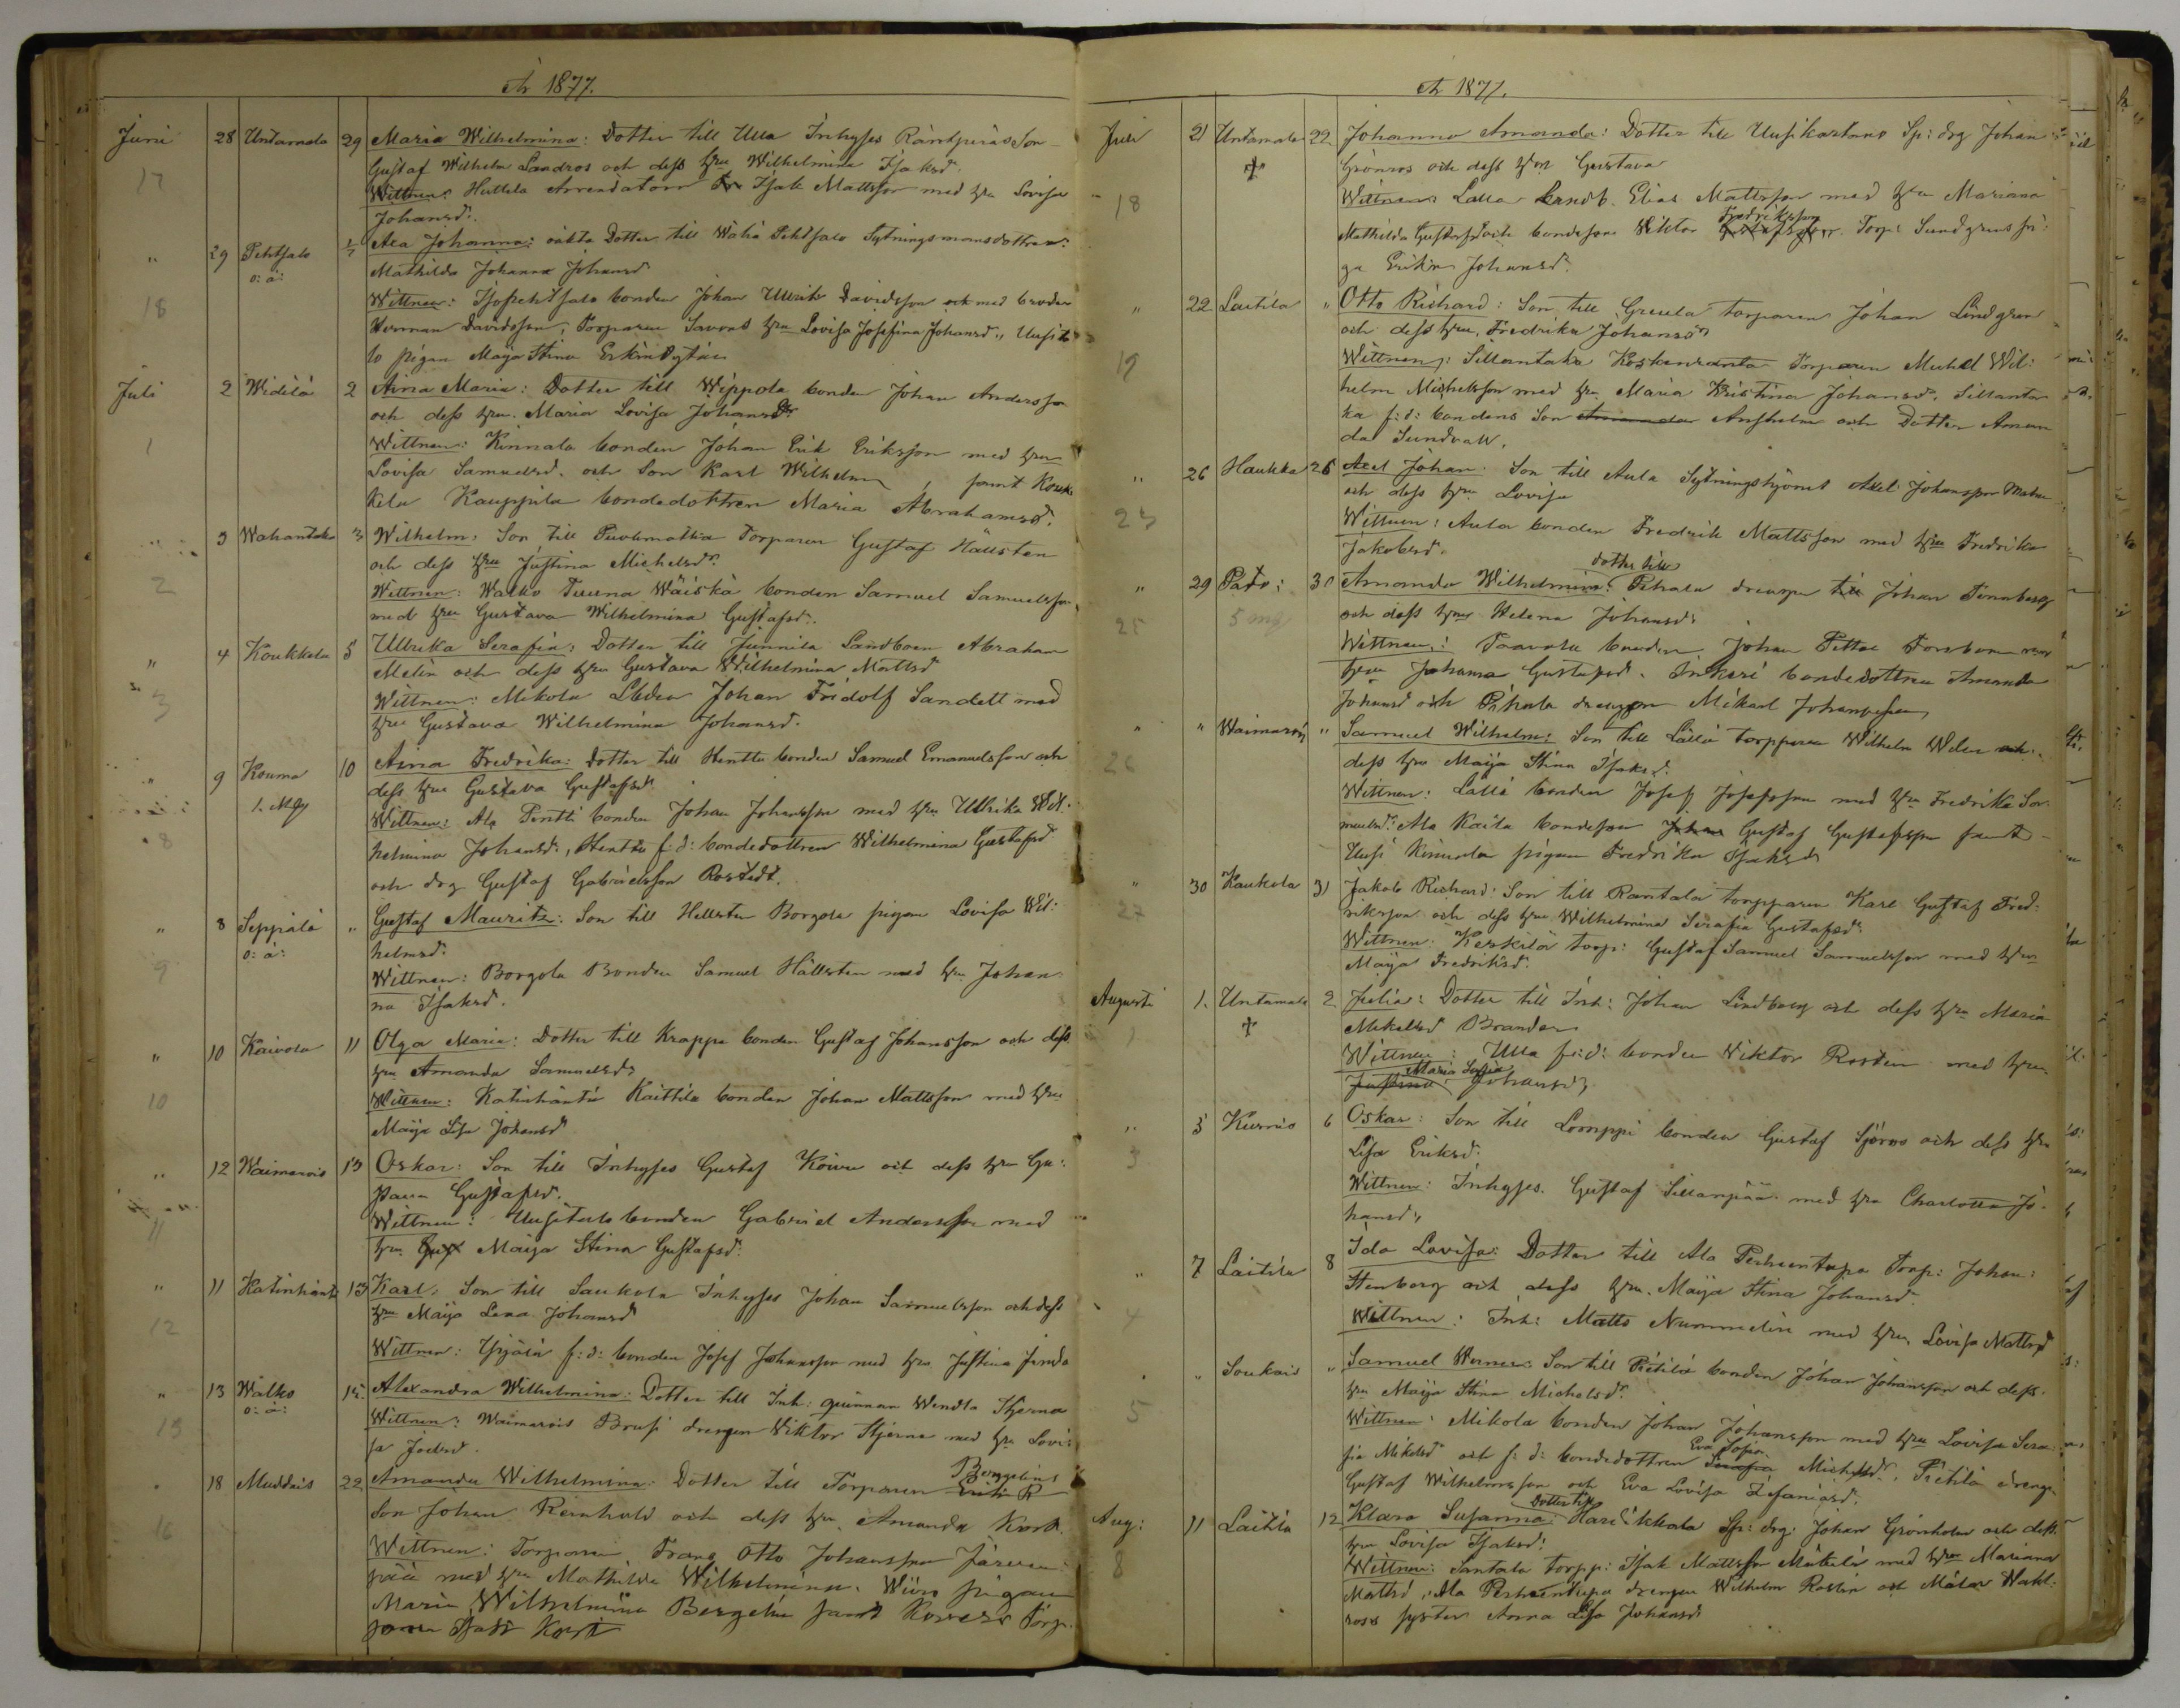 År 1877.
Juni 28 Untamala 29 Maria Wilhelmina: Dotter till Ulla Inhyses Rantperäs Son
17 Gustaf Wilhelm Sandros och dess hru Wilhelmina Isaksdr.
Wittnen: Huttala Arrendatorn Isak Mattsson med hru Lovisa
Johansdr.
" 29 o: ä: Johanna: oäkta Dotter till Sytningsmansdottren
Mathilda Johanna Johansdr
18 Wittnen: bonden Johan Ullrik Davidsson och med broder
Herman Davidsson, Torparen hru Lovisa Josefina Johansd.,
pigan Maija Stina
Juli 2 Widilä 2 Aina Maria: Dotter till Wippola bonden Johan Andersson
och dess hru. Maria Lovisa Johansdr
1 Wittnen: Kinnala bonden Johan Erik Eriksson med hru
Lovisa Samuelsd. och Son Karl Wilhelm, samt Kouk
kela Kauppila bondedottren Maria Abrahamsd.
" 3 Wahantaka 3 Wilhelm: Son till Torparen Gustaf Hällsten
2 och dess hru Justina Michelsdr.
Wittnen: Walko Tuuna Wäiskä bonden Samuel Samuelsson
med hru Gustava Wilhelmina Gustafsd.
" 4 Koukkela 5 Ullrika Serafia: Dotter till Junnila Landboen Abraham
3 Melin och dess hru Gustava Wilhelmina Mattsd
Wittnen: Mikola Lbden Johan Fridolf Sandell med
hru Gustava Wilhelmina Johansd.
" 9 Kouma 10 Aina Fredrika: Dotter till Hentti bonden Samuel Emanuelsson och
dess hru Gustava Gustafsdr
8 Wittnen: Ala Pentti bonden Johan Johansson med hru Ullrika Wil-
helmina Johansd., Henttu f: d: bondedottren Wilhelmina Gustafsd
och drg Gustaf Gabrielsson Rostedt.
" 8 Seppälä o: ä: " Gustaf Mauritz: Son till Hellsten Borgola pigan Lovisa Wil:
9 helmsd:
Wittnen: Borgola Bonden Samuel Hällsten med hru Johan
na Isaksd.
" 10 Kaivola 11 Olga Maria: Dotter till Krappe bonden Gustaf Johansson och dess
hru Amanda Samuelsdr
10 Wittnen: Katinhäntä Kaittila bonden Johan Mattsson med hru
Maija Lisa Johansdr
" 12 Waimaro 13 Oskar: Son till Inhyses Gustaf Koivu och dess hru Gu:
stava Gustafsd.
11 Wittnen: Uusitalo bonden Gabriel Andersson med
hru Maija Stina Gustafsd.
" 11 Katinhänt 13 Karl: Son till Saukola Inhyses Johan Samuelsson och dess
hru Maija Lena Johansd
12 Wittnen: f: d: bonden Josef Johansson med hru Justina
" 13 Walko o: ä: 15 Alexandra Wilhelmina: Dotter till Inh: quinnan Wendla Stjerna
13 Wittnen: Drengen Wiktor Stjerna med hru Lovi:
sa Joelsd.
18 Muddais 22 Amanda Wilhelmina: Dotter till Torparen Bergelins
Son Johan Reinhold och dess hru Amanda
16 Wittnen: Torparen Frans Otto Johansson
pää med hru Mathilda Wilhelmina. pigan
Maria Wilhelmina Bergelin samt Torp

År 1877.
Juli 21 Untamala 22 Johanna Amanda: Dotter till Uusikartano Sp: drg Johan
Grönros och dess hru Gustava
18 Wittnen: Lalla Landb. Elias Mattsson med hru Mariana
Mathilda Gustafsd och bondesonen Wiktor Fredriksson Torp: Sundgrens pi:
ga Erika Johansd.
" 22 Laitila " Otto Richard: Son till Greula torparen Johan Lindgren
och dess hru. Fredrika Johansdr
19 Wittnen: Sillantaka Koskenranta Torparen Michel Wil:
helm Michelsson med hru Maria Kristina Johansd., Sillanta
ka f: d: bondens Son Anshelm och Dotter Aman
da Sundvall.
" 26 Haukka 26 Axel Johan: Son till Aula Sytningshjonet Axel Johansson
och dess hru Lovisa
Wittnen: Aula bonden Fredrik Mattsson med hru Fredrika
Jakobsd.
" 29 Pato: 30 Amanda Wilhelmina: dotter till Pihala drengen Johan Tennberg
25 och dess hru Helena Johansd.
Wittnen: Taavola bonden Johan Petter Forsbom med
hru Johanna Gustafsd. Inkeri bondedottren Amanda
Johansd och Pihala drengen Mikael Johansson
" " Waimaro " Samuel Wilhelm: Son till Lälli torpparen Wilhelm Welin och
26 dess hru Maija Stina Isaksd.
Wittnen: Lälli bonden Josef Josefsson med hru Fredrika Sa
muelsd. Ala Kaila bondeson Gustaf Gustafsson samt
Uusi Kinnala pigan Fredrika Isaksdr
" 30 Kaukola 31 Jakob Richard: Son till Rantala torpparen Karl Gustaf Fred:
27 riksson och dess hru Wilhelmina Serafia Gustafsd.
Wittnen: Keskilä torp: Gustaf Samuel Samuelsson med hru
Maija Fredriksd.
Augusti 1. Untamala 2 Julia: Dotter till Inh: Johan Lindberg och dess hru Maria
1 Mikelsd Brander
Wittnen: Ulla f: d: bonden Wiktor Rosten med hru
Maria Sofia Johansdr
" 5 Kusnio 6 Oskar: Son till Lamppi bonden Gustaf Sjöros och dess hru
3 Lisa Eriksd.
Wittnen: Inhyses. Gustaf Sillanpää med hru Charlotta Jo
hansdr
" 7 Laitila 8 Ida Lovisa: Dotter till Ala Perheentupa Torp: Johan:
Stenberg och dess hru. Maija Stina Johansd
4 Wittnen: Inh: Matts Nummelin med hru. Lovisa Mattsd
" Soukais " Samuel Werner: Son till Pietilä bonden Johan Johansson och dess
hru Maija Stina Michelsd.
5 Wittnen: Mikola bonden Johan Johansson med hru Lovisa Sera
fia Mikelsd och f: d: bondedottren Eva Sofia Michelsd. Pietilä dreng
Gustaf Wilhelmsson och Eva Lovisa Zefaniasd.
Aug: 11 Laitila 12 Klara Susanna: Dotter till Harikkala Sp: drg: Johan Grönholm och dess
hru Lovisa Isaksd:
8 Wittnen: Santala torpp: Isak Mattsson med hru Mariana
Mattsd, Ala Perheentupa drengen Wilhelm Roslin och Målar Wahl:
roos syster Anna Lisa Johansd